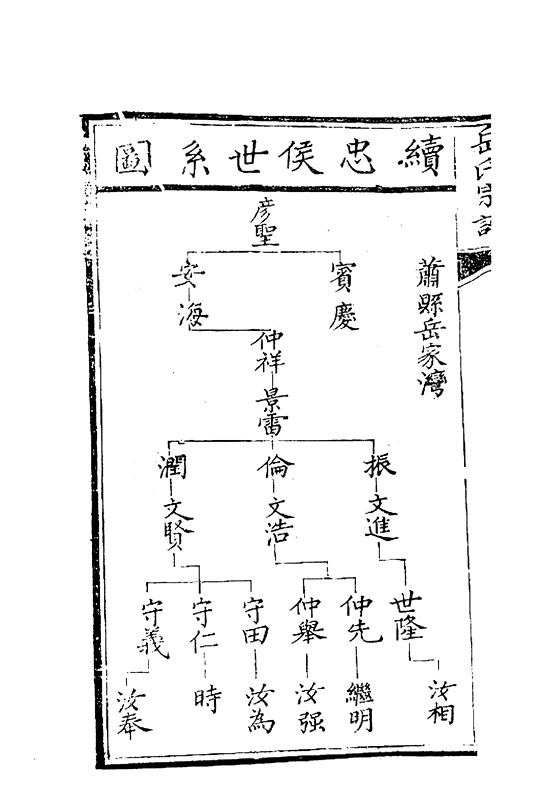 續忠侯世系圖
岳氏宗譜
蕭縣岳家灣
彦聖
賓慶
安海
仲祥
景雷
振
倫
潤
文進
文浩
文賢
世隆
仲先
仲舉
守田
守仁
守義
汝相
繼明
汝强
汝為
時
汝奉